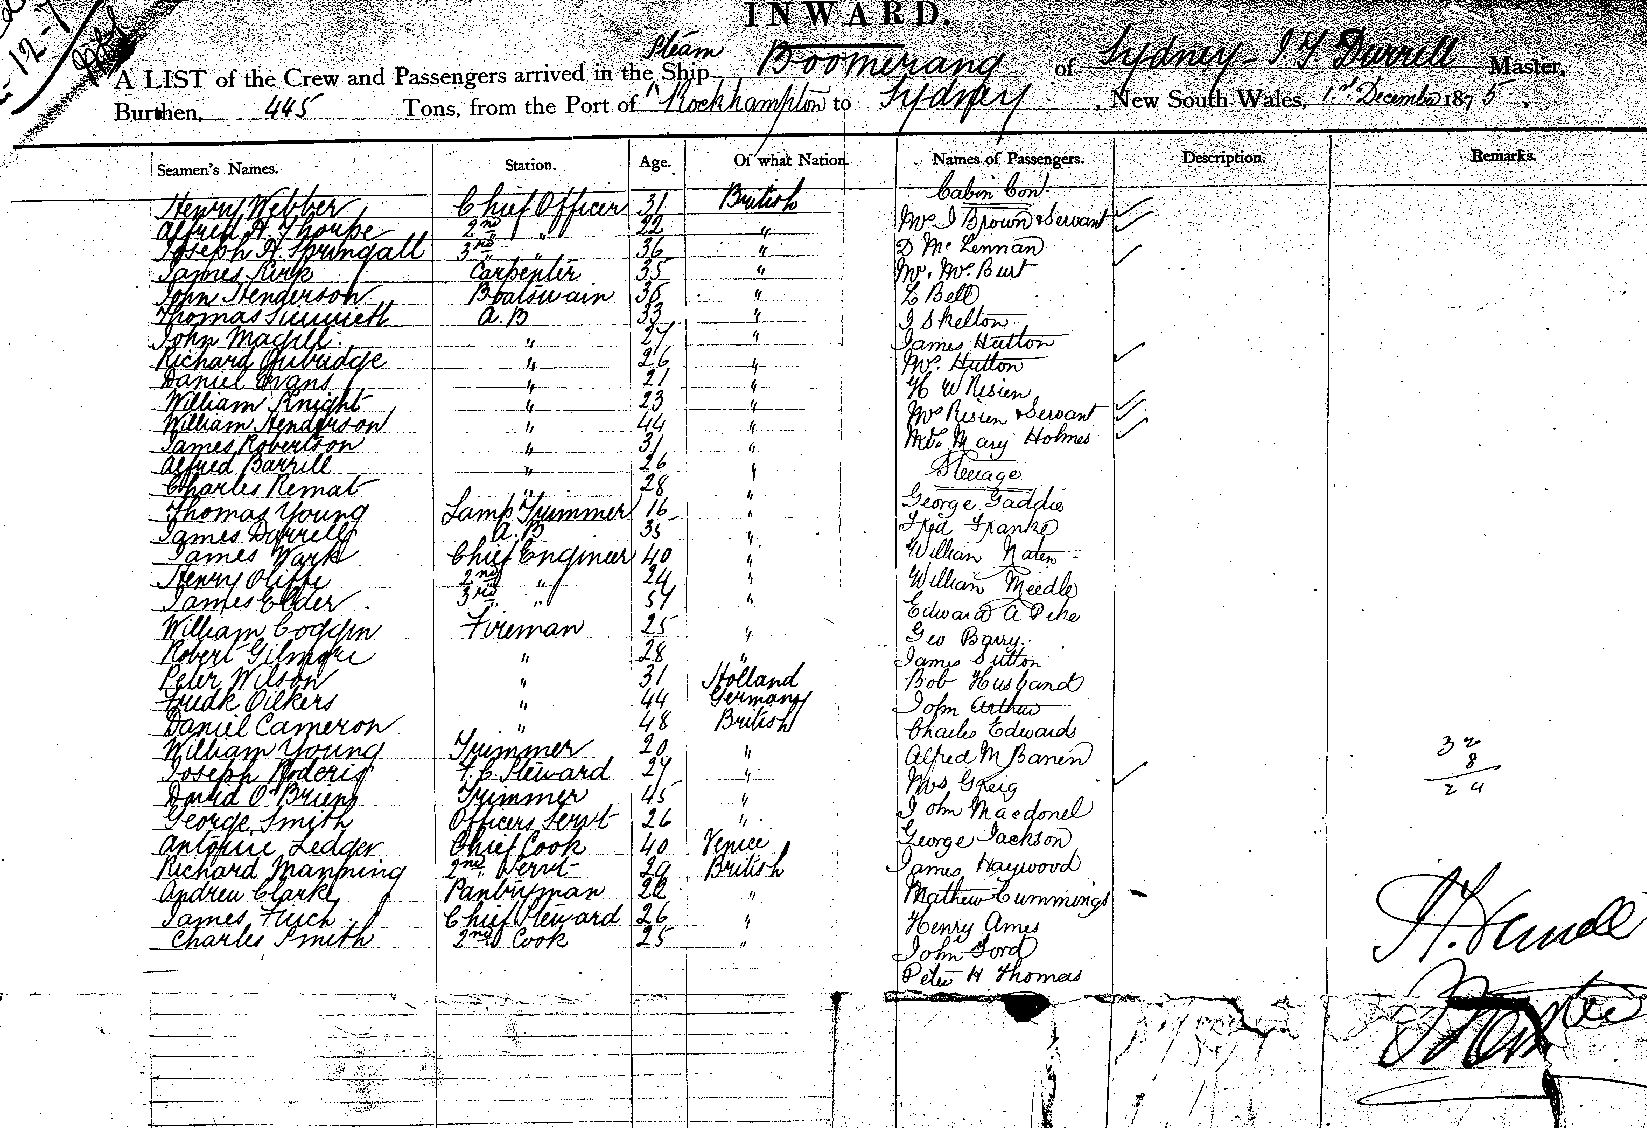 INWARD.
Steam
A LIST of the Crew and Passengers arrived in the Ship Boomerang of Sydney Master,
Burthen, 445 Tons, from the Port of Rockhampton to Sydney, New South Wales, 1st December 1875.
Seamen's Names. Station. Age. Of what Nation. Names of Passengers. Description. Remarks.
Henry Webber Chief Officer 31 British
Alfred H. Thorpe 2nd " 22 "
Joseph H. Springall 3rd " 36 "
James Kirk Carpenter 35 "
John Henderson Boatswain "
Thomas A.B 33 "
John Magill " 27 "
Richard " 26 "
Daniel Evans " 21 "
William Knight " 23 "
William Henderson " 44 "
James Robertson " 31 "
Alfred Barrill " 26 "
Charles Remat " 28 "
Thomas Young Lamp Trimmer 16 "
James Darrell A.B 35 "
James Wark Chief Engineer 40 "
Henry 2nd " 24 "
James Elder 3rd " "
William Coggin Fireman 25 "
Robert Gilmore " 28 "
Peter Wilson " 31 Holland
Fredk Oilkers " 44 Germany
Daniel Cameron " 48 British
William Young Trimmer 20 "
Joseph Steward 27 "
David O'Brien Trimmer 45 "
George Smith Officers Servt 26 "
Antoine Ledger Chief Cook 40 Venice
Richard Manning 2nd Servt 29 British
Andrew Clarke Pantryman 22 "
James Finch Chief Steward 26 "
Charles Smith 2nd Cook 25 "
Cabin
Mr J Brown & Servant
D McLennan
Burt
Bell
J Skelton
James Hutton
Hutton
H W Risien
Mrs Risien & Servant
Mary Holmes
Steerage
George Gaddie
Fred Franks
William
William Meedle
Edward A Pike
Geo Barry
James Sutton
Bob Husband
John Arthur
Charles Edwards
Alfred M
Mrs Greig
John Macdonel
George Jackson
James Haywood
Mathew Cummings
Henry Ames
John Ford
Peter H Thomas
32
8
24